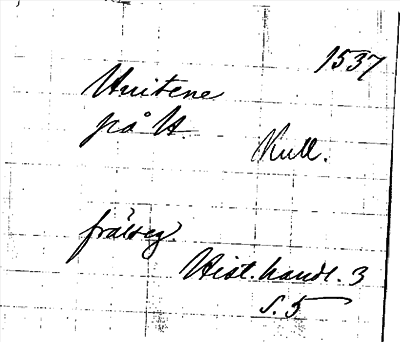 1537
Hvitene
på H.
Kull.
frälseg.
Hist. handl. 3
S. 5